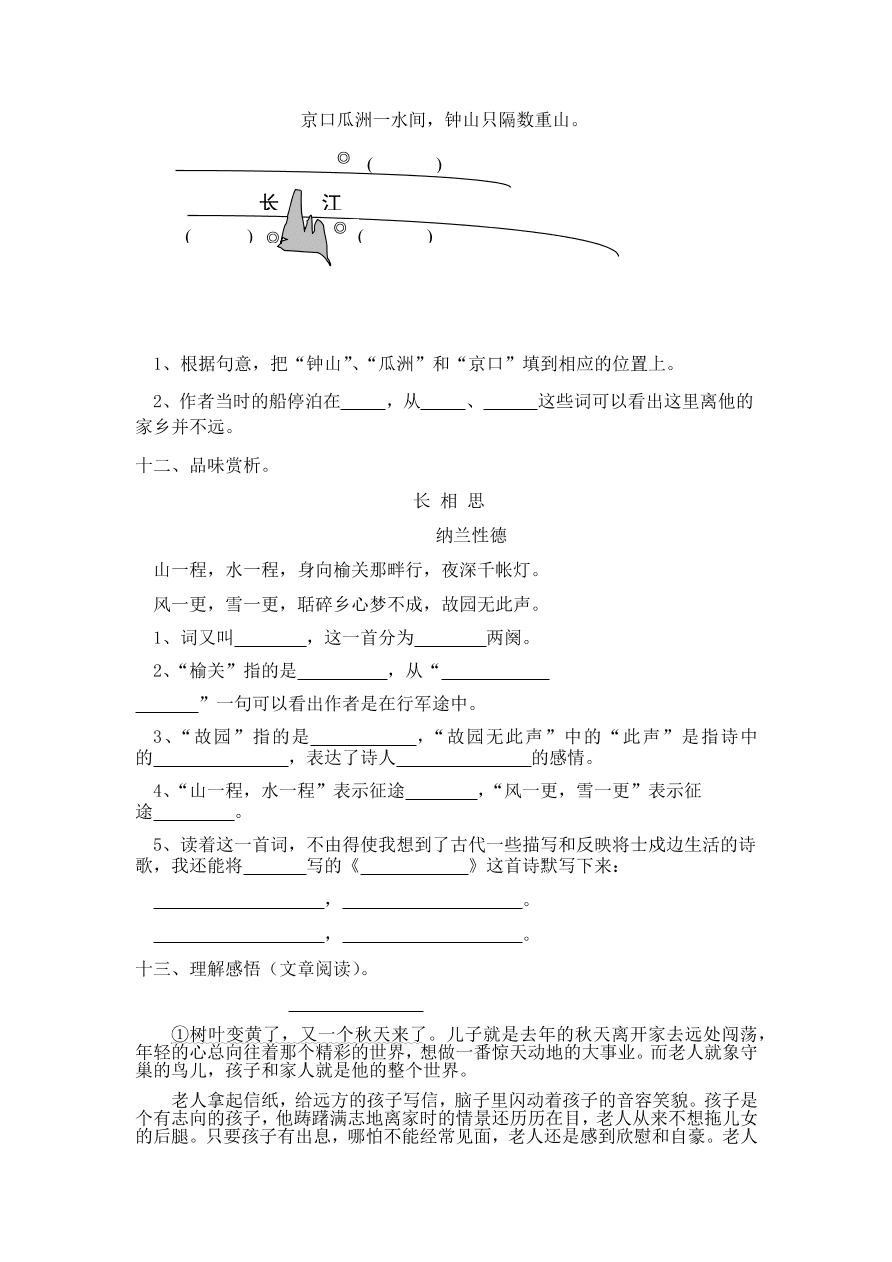 京口瓜洲一水间，钟山只隔数重山。
◎ (　　　)
长　江
(　　　) ◎　◎ (　　　)
1、根据句意，把“钟山”、“瓜洲”和“京口”填到相应的位置上。
2、作者当时的船停泊在_____，从_____、______这些词可以看出这里离他的
家乡并不远。
十二、品味赏析。
长 相 思
纳兰性德
山一程，水一程，身向榆关那畔行，夜深千帐灯。
风一更，雪一更，聒碎乡心梦不成，故园无此声。
1、词又叫________，这一首分为________两阕。
2、“榆关”指的是__________，从“____________
_______”一句可以看出作者是在行军途中。
3、“故园”指的是____________，“故园无此声”中的“此声”是指诗中
的_______________，表达了诗人_______________的感情。
4、“山一程，水一程”表示征途________，“风一更，雪一更”表示征
途_________。
5、读着这一首词，不由得使我想到了古代一些描写和反映将士戍边生活的诗
歌，我还能将_______写的《____________》这首诗默写下来：
___________________，____________________。
___________________，____________________。
十三、理解感悟（文章阅读）。
_______________
①树叶变黄了，又一个秋天来了。儿子就是去年的秋天离开家去远处闯荡，
年轻的心总向往着那个精彩的世界，想做一番惊天动地的大事业。而老人就象守
巢的鸟儿，孩子和家人就是他的整个世界。
老人拿起信纸，给远方的孩子写信，脑子里闪动着孩子的音容笑貌。孩子是
个有志向的孩子，他踌躇满志地离家时的情景还历历在目，老人从来不想拖儿女
的后腿。只要孩子有出息，哪怕不能经常见面，老人还是感到欣慰和自豪。老人